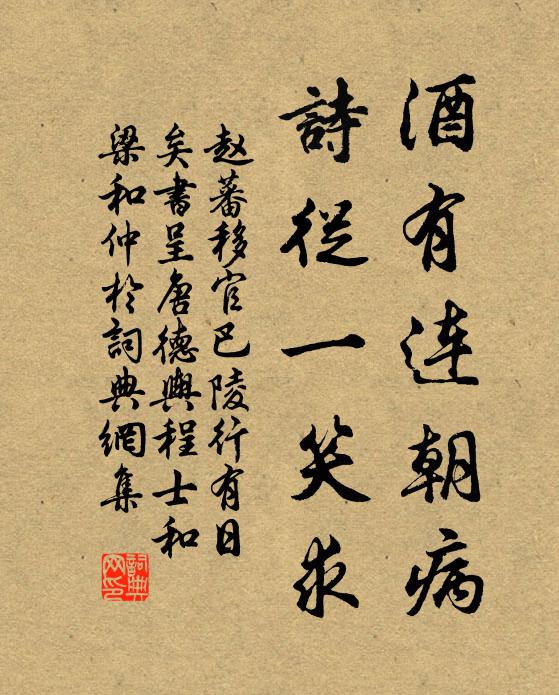 酒有连朝病
詩從一笑求
赵蕃移官巴陵行有日
矣書呈唐德輿程士和
梁和仲於詞典網集
詞典網印